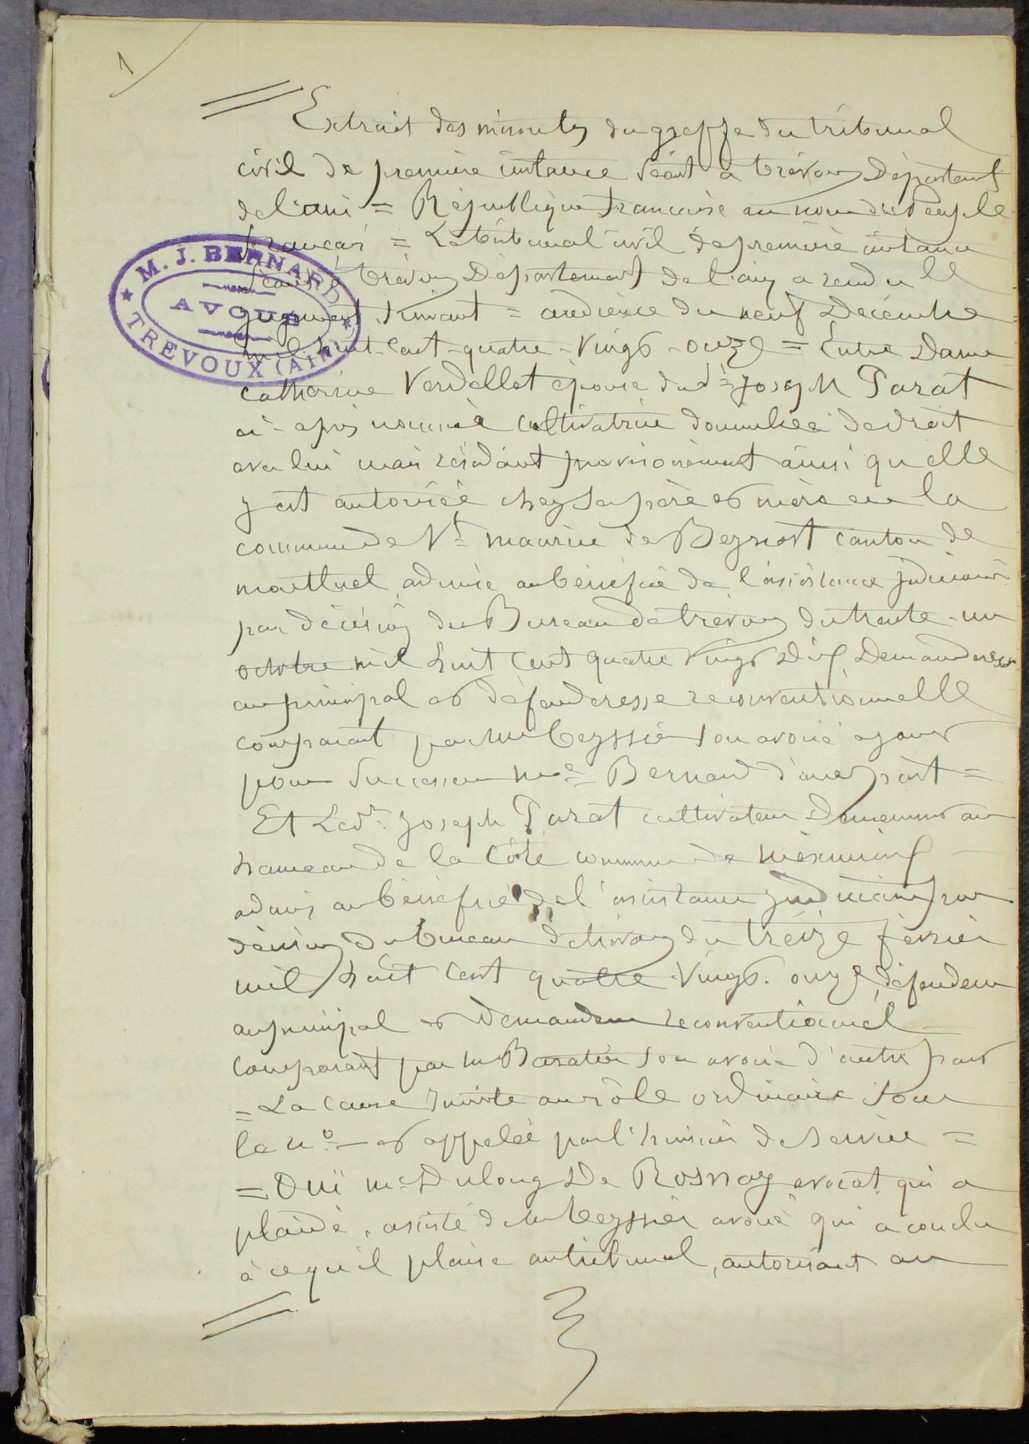 1
Extrait des minutes du greffe du tribunal
civil de première instance séant à trévoux Département
de l'ain = République française au nom du Peuple
français = Le tribunal civil de première instance
séant à trévoux Département de l'ain a rendu le
jugement suivant = audience du neuf Décembre
mil huit-cent-quatre-vingt-onze = Entre Dame
Catherine Verdellet épouse du dr Joseph Parat
ci-après nommé cultivatrice domiciliée de droit
avec lui mais résidant provisoirement ainsi qu'elle
y est autorisée chez ses père et mère en la
commune de St maurice de Beynost canton de
montluel, admise au bénéfice de l'assistance judiciaire
par décision du Bureau de trévoux du trente-un
octobre mil huit cent quatre vingt dix, Demanderesse
au principal et défenderesse reconventionnelle
comparant par Me teyssier son avoué ayant
pour successeur Me Bernard d'une part =
Et Le dr Joseph Parat cultivateur Demeurant au
hameau de la Côte commune de meximieux
admis au bénéfice de l'assistance judiciaire par
décision du bureau de trévoux du treize février
mil huit cent quatre-vingt-onze, défendeur
au principal et demandeur reconventionnel
comparant par Me Baratin son avoué d'autre part
= La cause inscrite au rôle ordinaire sous
le no et appelée par l'huissier de service =
= Ouï Me Dulong De Rosnay avocat qui a
plaidé, assisté de Me teyssier avoué qui a conclu
à ce qu'il plaise au tribunal, autorisant au
M. J. BERNARD
AVOUÉ
TREVOUX (AIN)